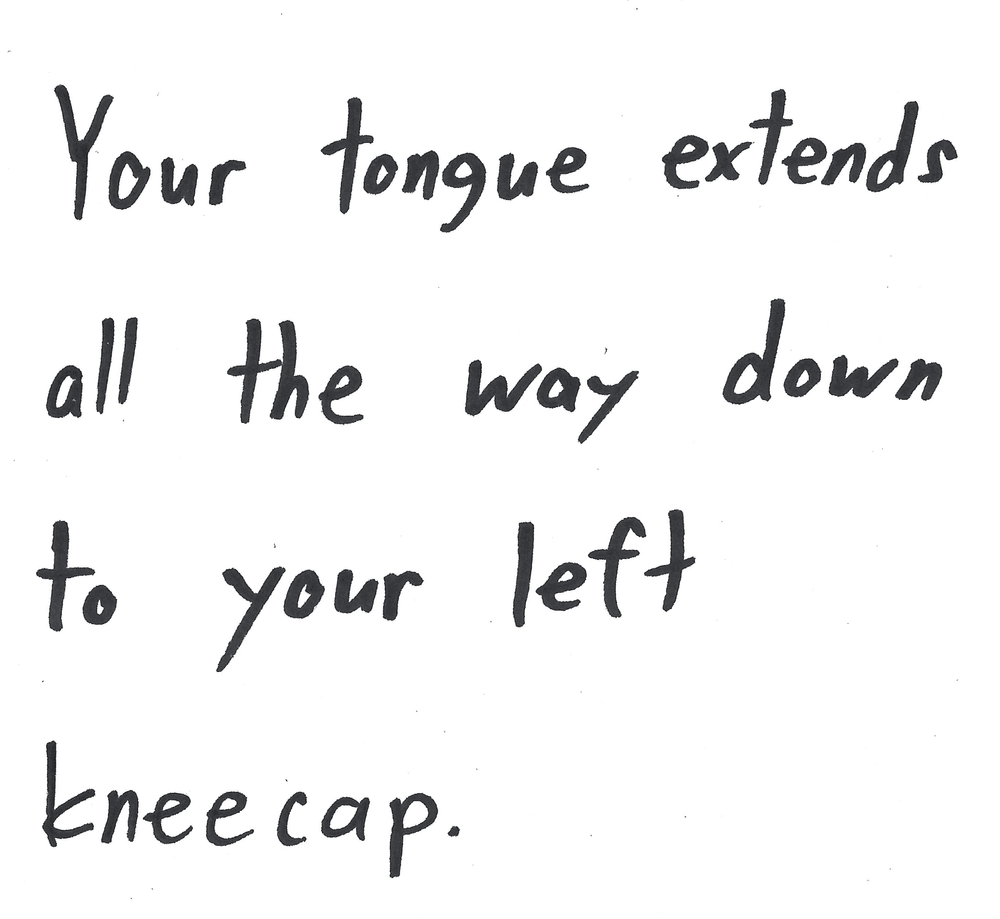 Your tongue extends
all the way down
to your left
kneecap.